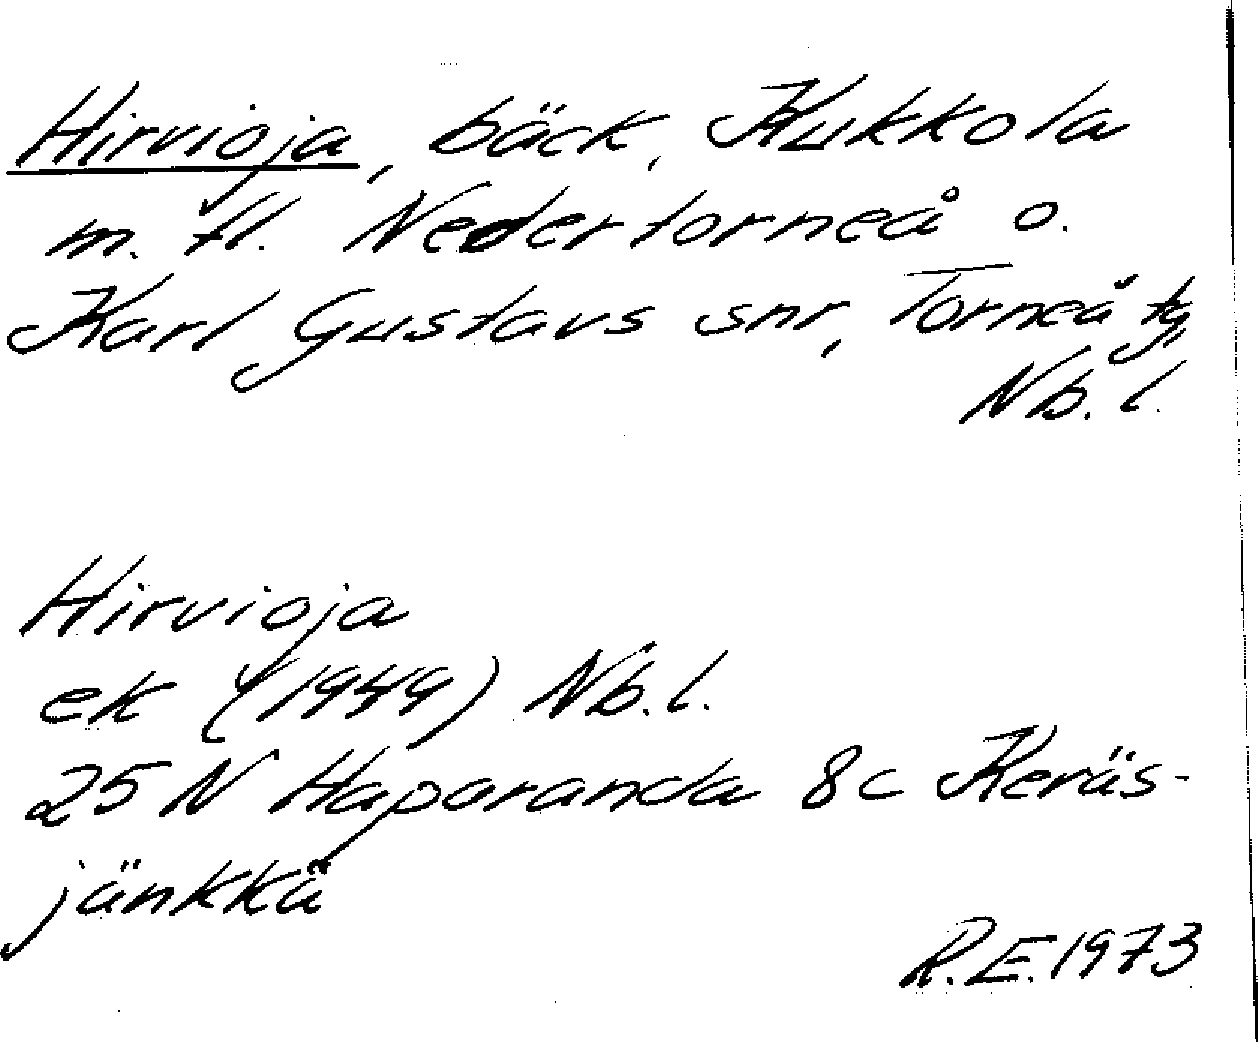 Hirvioja, bäck, Kukkola
m. fl. Nedertorneå o.
Karl Gustavs snr, Torneå tg,
Nb. l.
Hirvioja
ek (1949) Nb. l.
25 N Haparanda 8c Keräs-
jänkkä
R.E. 1973